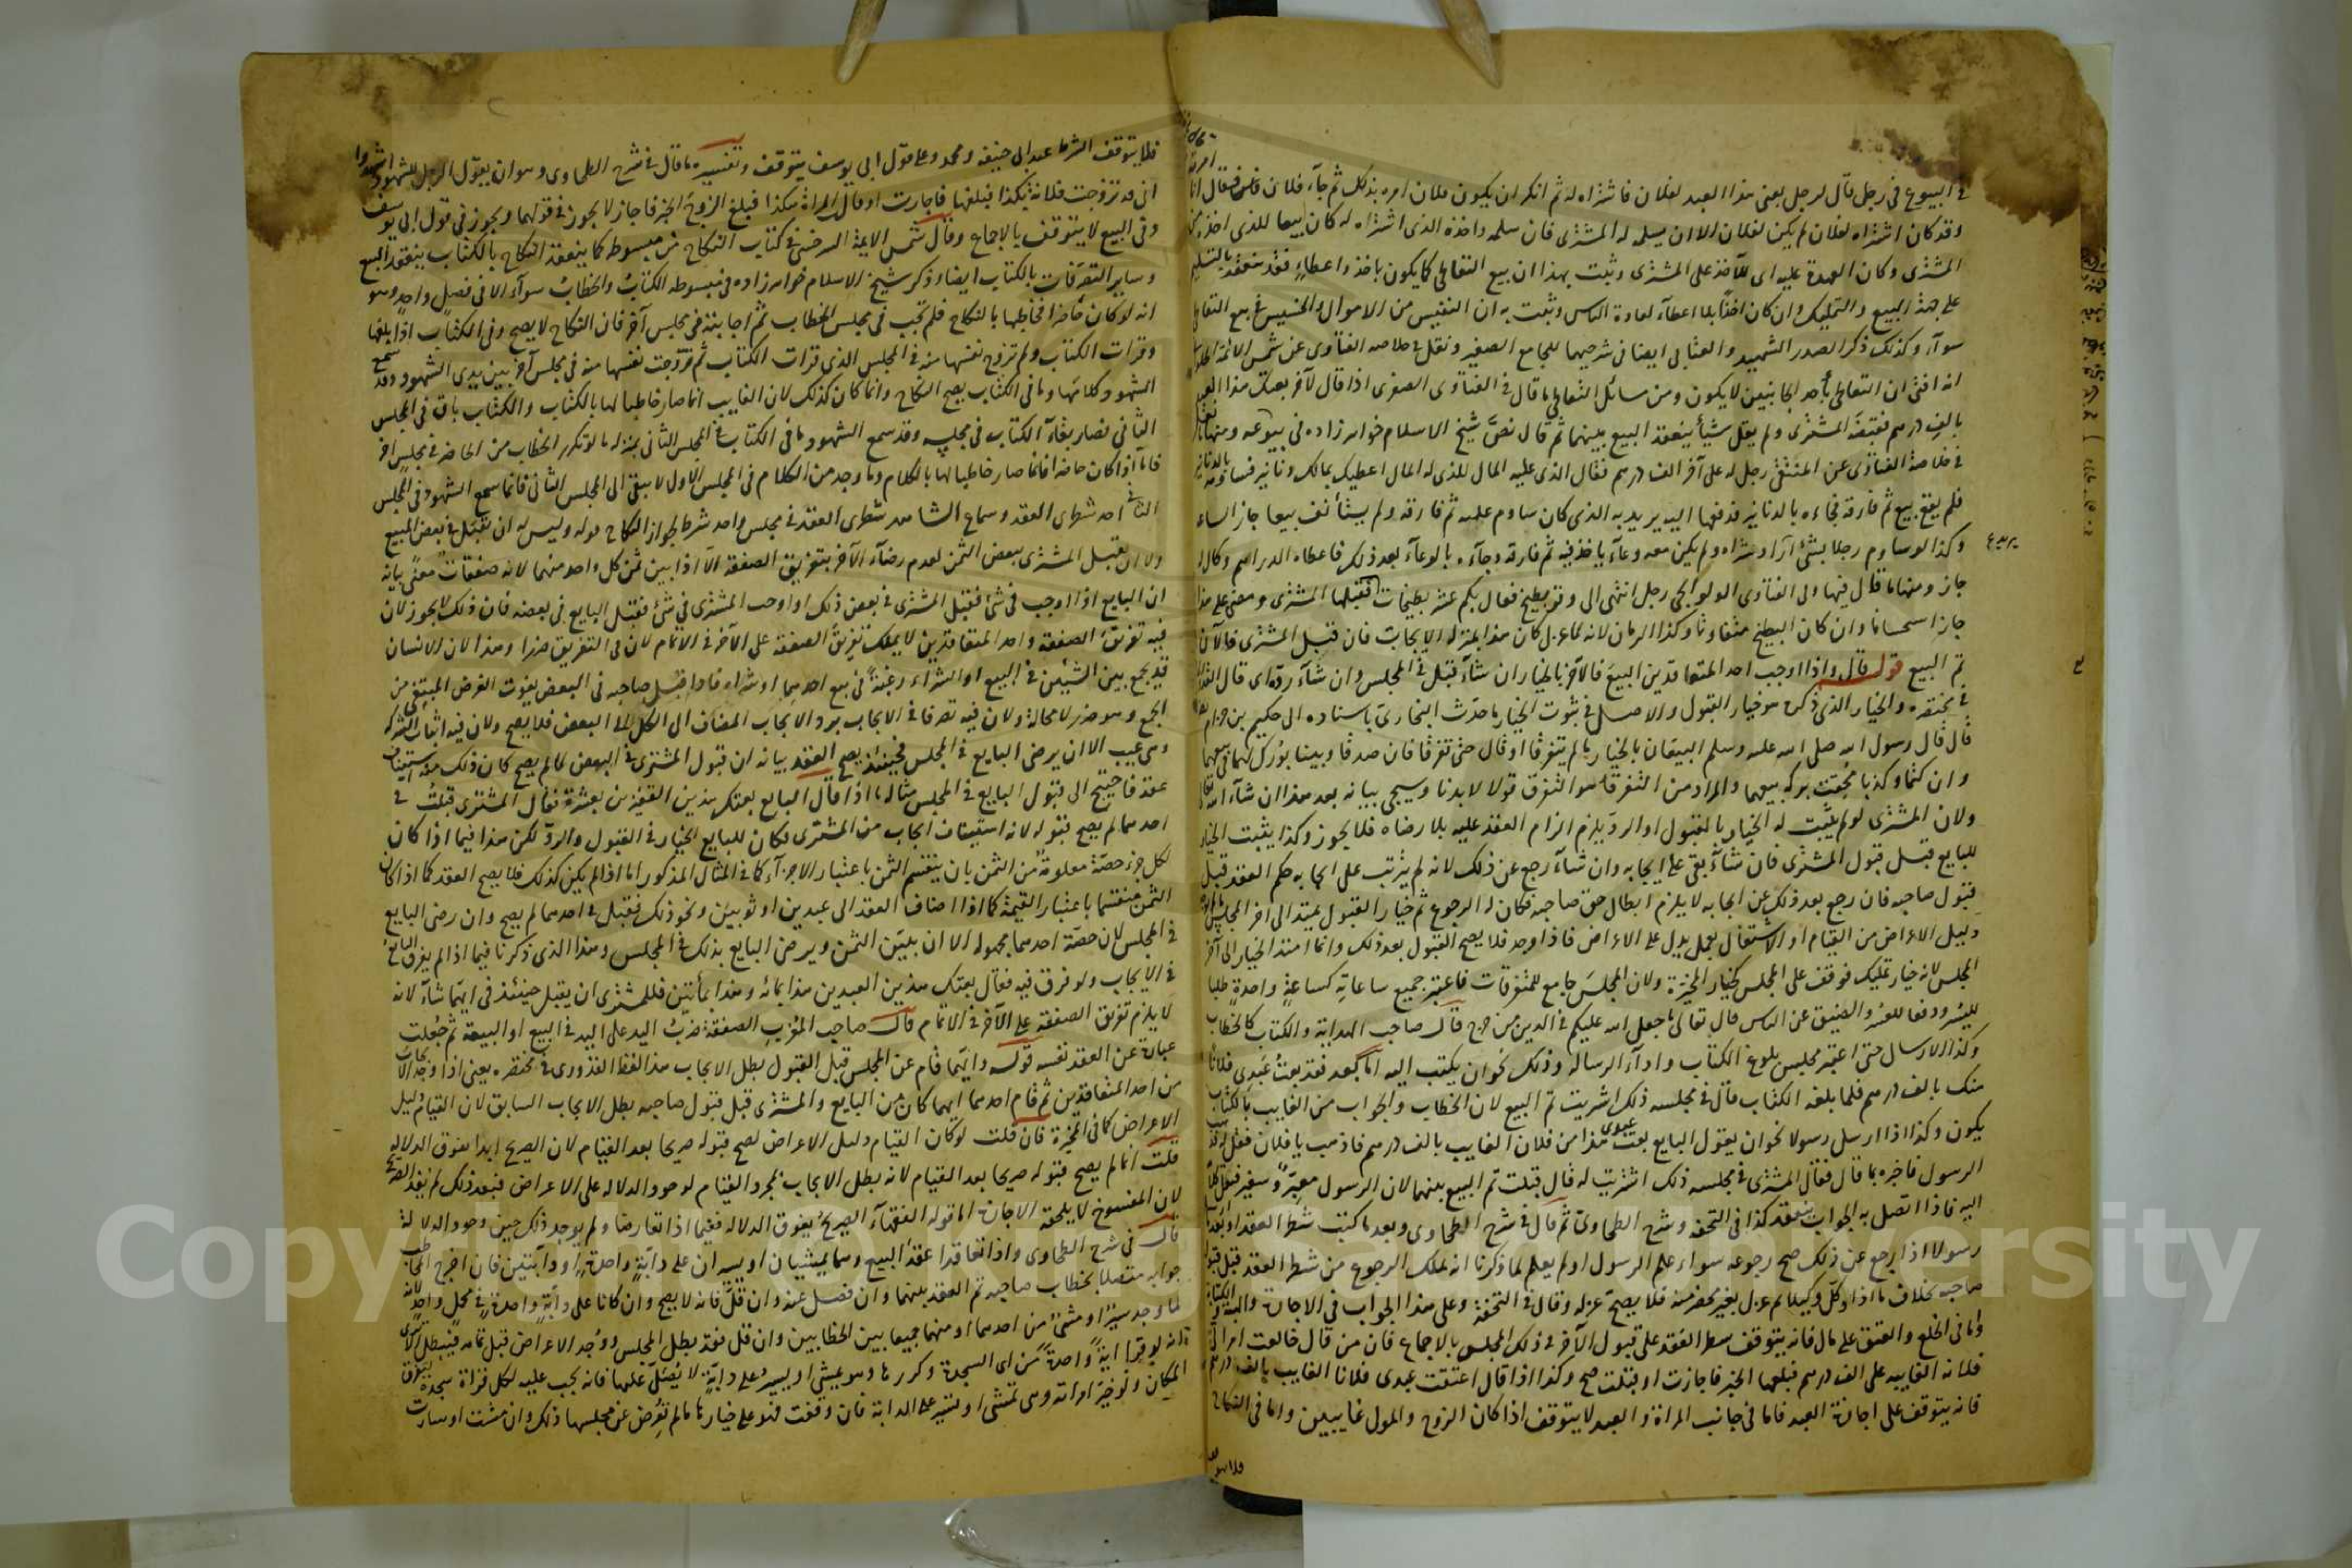 في البيوع في رجل قال لرجل بعني هذا العبد لفلان فاشتراه له ثم انكر ان يكون فلان امره بذلك ثم جاء فلان فقال انا
وقد كان اشتراه لفلان لم يكن لفلان الا ان يسلمه له المشترى فان سلمه واخذه الذى اشتراه له كان بيعا للذى اخذه من
المشترى وكان العهدة عليه اى للآخذ على المشترى وثبت بهذا ان بيع التعاطى كما يكون باخذ واعطاء فقد ينعقد بالتسليم
على جهة البيع والتمليك وان كان اخذا بلا اعطاء لعادة الناس وثبت به ان النفيس من الاموال والخسيس في بيع التعاطى
سواء وكذلك ذكر الصدر الشهيد والعتابى ايضا في شرحيهما للجامع الصغير ونقل في خلاصة الفتاوى عن شمس الائمة الحلوانى
انه افتى ان التعاطى باحد الجانبين لا يكون ومن مسائل التعاطى ما قال في الفتاوى الصغرى اذا قال لآخر بعتك هذا العبد
بالف درهم فقبضه المشترى ولم يقل شيأ ينعقد البيع بينهما ثم قال نص شيخ الاسلام خواهر زاده في بيوعه ومنها ما نقل
في خلاصة الفتاوى عن المنتقى رجل له على آخر الف درهم فقال الذى عليه المال للذى له المال اعطيك بمالك دنانير فساومه بالدنانير
فلم يقع بيع ثم فارقه فجاءه بالدنانير فدفعها اليه يريد به الذى كان ساوم عليه ثم فارقه ولم يستأنف بيعا جاز الساعة
وكذا لو ساوم رجلا بشئ اراد شراه ولم يكن معه وعاء ياخذ فيه ثم فارقه وجاءه بالوعاء بعد ذلك فاعطاه الدراهم وكال له
جاز ومنها ما قال فيها وفى الفتاوى الولوالجى رجل انتهى الى وقر بطيخ فقال بكم عشر بطيخات فقبلها المشترى ومضى على هذا
جاز استحسانا وان كان البطيخ متفاوتا وكذا الرمان لانه لما عزل كان هذا بمنزلة الايجاب فان قبل المشترى فالآن
تم البيع قوله قال واذا اوجب احد المتعاقدين البيع فالآخر بالخيار ان شاء قبل في المجلس وان شاء رده اى قال القدورى
في مختصره والخيار الذى ذكره هو خيار القبول والاصل في ثبوت الخيار ما حدث البخارى باسناده الى حكيم بن حزام
قال قال رسول الله صلى الله عليه وسلم البيعان بالخيار ما لم يتفرقا او قال حتى تفرقا فان صدقا وبينا بورك لهما في بيعهما
وان كتما وكذبا محقت بركة بيعهما والمراد من التفرق هو التفرق قولا لا بدنا وسيجئ بيانه بعد هذا ان شاء الله تعالى
ولان المشترى لو لم يثبت له الخيار بالقبول او الرد يلزم الزام العقد عليه بلا رضاه فلا يجوز وكذا يثبت الخيار
للبايع قبل قبول المشترى فان شاء بقى على ايجابه وان شاء رجع عن ذلك لانه لم يترتب على ايجابه حكم العقد قبل
قبول صاحبه فان رجع بعد ذلك عن ايجابه لا يلزم ابطال حق صاحبه فكان له الرجوع ثم خيار القبول يمتد الى اخر المجلس
دليل الاعراض من القيام او الاشتغال بعمل يدل على الاعراض فاذا وجد فلا يصح القبول بعد ذلك وانما امتد الخيار الى آخر
المجلس لانه خيار تمليك فوقف على المجلس كخيار المخيرة ولان المجلس جامع للمتفرقات فاعتبر جميع ساعاته كساعة واحدة طلبا
لليسر ودفعا للعسر والضيق عن الناس قال تعالى ما جعل الله عليكم في الدين من حرج قال صاحب الهداية والكتاب كالخطاب
وكذا الارسال حتى اعتبر مجلس بلوغ الكتاب واداء الرسالة وذلك نحو ان يكتب اليه اما بعد فقد بعت عبدى فلانا
منك بالف درهم فلما بلغه الكتاب قال في مجلسه ذلك اشتريت تم البيع لان الخطاب والجواب من الغايب بالكتاب
يكون وكذا اذا ارسل رسولا نحو ان يقول البايع بعت عبدى هذا من فلان الغايب بالف درهم فاذهب يا فلان فقل له
الرسول فاخبره بما قال فقال المشترى في مجلسه ذلك اشتريت له قال قبلت تم البيع بينهما لان الرسول معبر وسفير فنقل
اليه فاذا اتصل به الجواب ينعقد كذا في التحفة وشرح الطحاوى ثم قال في شرح الطحاوى وبعد ما كتب شطر العقد او بعث
رسولا اذا رجع عن ذلك صح رجوعه سواء علم الرسول او لم يعلم لما ذكرنا انه يملك الرجوع من شطر العقد قبل قبول
صاحبه بخلاف ما اذا وكل وكيلا ثم عزل بغير محضر منه فلا يصح عزله وقال في التحفة وعلى هذا الجواب في الاجارة والهبة والكتابة
واما في الخلع والعتق على مال فانه يتوقف شطر العقد على قبول الآخر في ذلك المجلس بالاجماع فان من قال خالعت امراتى
فلانة الغايبة على الف درهم فبلغها الخبر فاجازت او قبلت صح وكذا اذا قال اعتقت عبدى فلانا الغايب بالف درهم
فانه يتوقف على اجازة العبد فاما في جانب المراة والعبد لا يتوقف اذا كان الزوج والمولى غايبين واما في النكاح
فلا يتوقف الشرط عند ابى حنيفة ومحمد وعلى قول ابى يوسف يتوقف وتفسيره ما قال في شرح الطحاوى وهو ان يقول الرجل للشهود اشهدوا
انى قد تزوجت فلانة بكذا فبلغها فاجازت او قال المراة هكذا فبلغ الزوج الخبر فاجاز لا يجوز في قولهما ويجوز في قول ابى يوسف
وفى البيع لا يتوقف بالاجماع وقال شمس الايمة السرخسى في كتاب النكاح من مبسوطه كما ينعقد النكاح بالكتاب ينعقد البيع
وساير التصرفات بالكتاب ايضا وذكر شيخ الاسلام خواهر زاده في مبسوطه الكتاب والخطاب سواء الا في فصل واحد وهو
انه لو كان حاضرا فخاطبها بالنكاح فلم تجب في مجلس الخطاب ثم اجابته في مجلس آخر فان النكاح لا يصح وفى الكتاب اذا بلغها
وقرات الكتاب ولم تزوج نفسها منه في المجلس الذى قرات الكتاب ثم زوجت نفسها منه في مجلس آخر بين يدى الشهود وقد سمع
الشهود كلامها وما في الكتاب يصح النكاح وانما كان كذلك لان الغايب انما صار خاطبا لها بالكتاب والكتاب باق في المجلس
الثانى فصار بقاء الكتاب في مجلسه وقد سمع الشهود ما في الكتاب في المجلس الثانى بمنزلة ما لو تكرر الخطاب من الحاضر في مجلس اخر
فاما اذا كان حاضرا فانما صار خاطبا لها بالكلام وما وجد من الكلام في المجلس الاول لا يبقى الى المجلس الثانى فانما سمع الشهود في المجلس
الثانى احد شطرى العقد وسماع الشاهد شطرى العقد في مجلس واحد شرط لجواز النكاح قوله وليس له ان يقبل في بعض المبيع
ولا ان يقبل المشترى ببعض الثمن لعدم رضاء الآخر بتفريق الصفقة الا اذا بين ثمن كل واحد منهما لانه صفقات معنى بيانه
ان البايع اذا اوجب في شئ فقبل المشترى في بعض ذلك او اوجب المشترى في شئ فقبل البايع في بعضه فان ذلك لا يجوز لان
فيه تفرق الصفقة واحد المتعاقدين لا يملك تفريق الصفقة على الآخر في الاتمام لان في التفريق ضررا وهذا لان الانسان
قد يجمع بين الشيئين في البيع او الشراء رغبة في بيع احدهما او شراه فاذا قبل صاحبه في البعض يفوت الغرض المبتغى من
الجمع وهو ضرر لا محالة ولان فيه تصرفا في الايجاب برد الايجاب المضاف الى الكل الى البعض فلا يصح ولان فيه اثبات الشركة
وهى عيب الا ان يرضى البايع في المجلس فحينئذ يصح العقد بيانه ان قبول المشترى في البعض لما لم يصح كان ذلك منه استيناف
عقد فاحتيج الى قبول البايع في المجلس مثاله ما اذا قال البايع بعتك هذين القفيزين بعشرة فقال المشترى قبلت في
احدهما لم يصح قبوله لانه استيناف ايجاب من المشترى فكان للبايع الخيار في القبول والرد لكن هذا فيما اذا كان
لكل جزء حصة معلومة من الثمن بان ينقسم الثمن باعتبار الاجزاء كما في المثال المذكور اما اذا لم يكن كذلك فلا يصح العقد كما اذا كان
الثمن منقسما باعتبار القيمة كما اذا اضاف العقد الى عبدين او ثوبين ونحو ذلك فقبل في احدهما لم يصح وان رضى البايع
في المجلس لان حصة احدهما مجهولة الا ان يبين الثمن ويرضى البايع بذلك في المجلس وهذا الذى ذكرنا فيما اذا لم يفرق البايع
في الايجاب ولو فرق فيه فقال بعتك هذين العبدين هذا بمائة وهذا بمأتين فللمشترى ان يقبل حينئذ في ايهما شاء لانه
لا يلزم تفريق الصفقة على الآخر في الاتمام قال صاحب المغرب الصفقة ضرب اليد على اليد في البيع او البيعة ثم جعلت
عبارة عن العقد نفسه قوله وايهما قام عن المجلس قبل القبول بطل الايجاب هذا لفظ القدورى في مختصره يعنى اذا وجد الايجاب
من احد المتعاقدين ثم قام احدهما ايهما كان من البايع والمشترى قبل قبول صاحبه بطل الايجاب السابق لان القيام دليل
الاعراض كما في المخيرة فان قلت لو كان القيام دليل الاعراض لصح قبوله صريحا بعد القيام لان الصريح ابدا يفوق الدلالة
قلت انما لم يصح قبوله صريحا بعد القيام لانه بطل الايجاب بمجرد القيام لوجود الدلالة على الاعراض فبعد ذلك لم يفد الصريح
لان المفسوخ لا يلحقه الاجازة اما قوله الفقهاء الصريح يفوق الدلالة ففيما اذا تعارضا ولم يوجد ذلك حين وجود الدلالة
قال في شرح الطحاوى واذا تعاقدا عقد البيع وهما يمشيان او يسيران على دابة واحدة او دابتين فان اخرج المخاطب
جوابه متصلا بخطاب صاحبه تم العقد بينهما وان فصل عنه وان قل فانه لا يصح وان كانا على دابة واحدة في محمل واحد لانه
لما وجد سيرا او مشى من احدهما او منهما جميعا بين الخطابين وان قل فقد بطل المجلس ووجد الاعراض قبل تمامه فيبطل
الا ترى انه لو قرا آية واحدة من اى السجدة وكررها وهو يمشى او يسير على دابة لا يصلى عليها فانه يجب عليه لكل قراة سجدة لتفرق
المكان ولو خير امراته وهى تمشى او تسير على الدابة فان وقفت فهو على خيارها ما لم تعرض عن مجلسها ذلك وان مشت او سارت